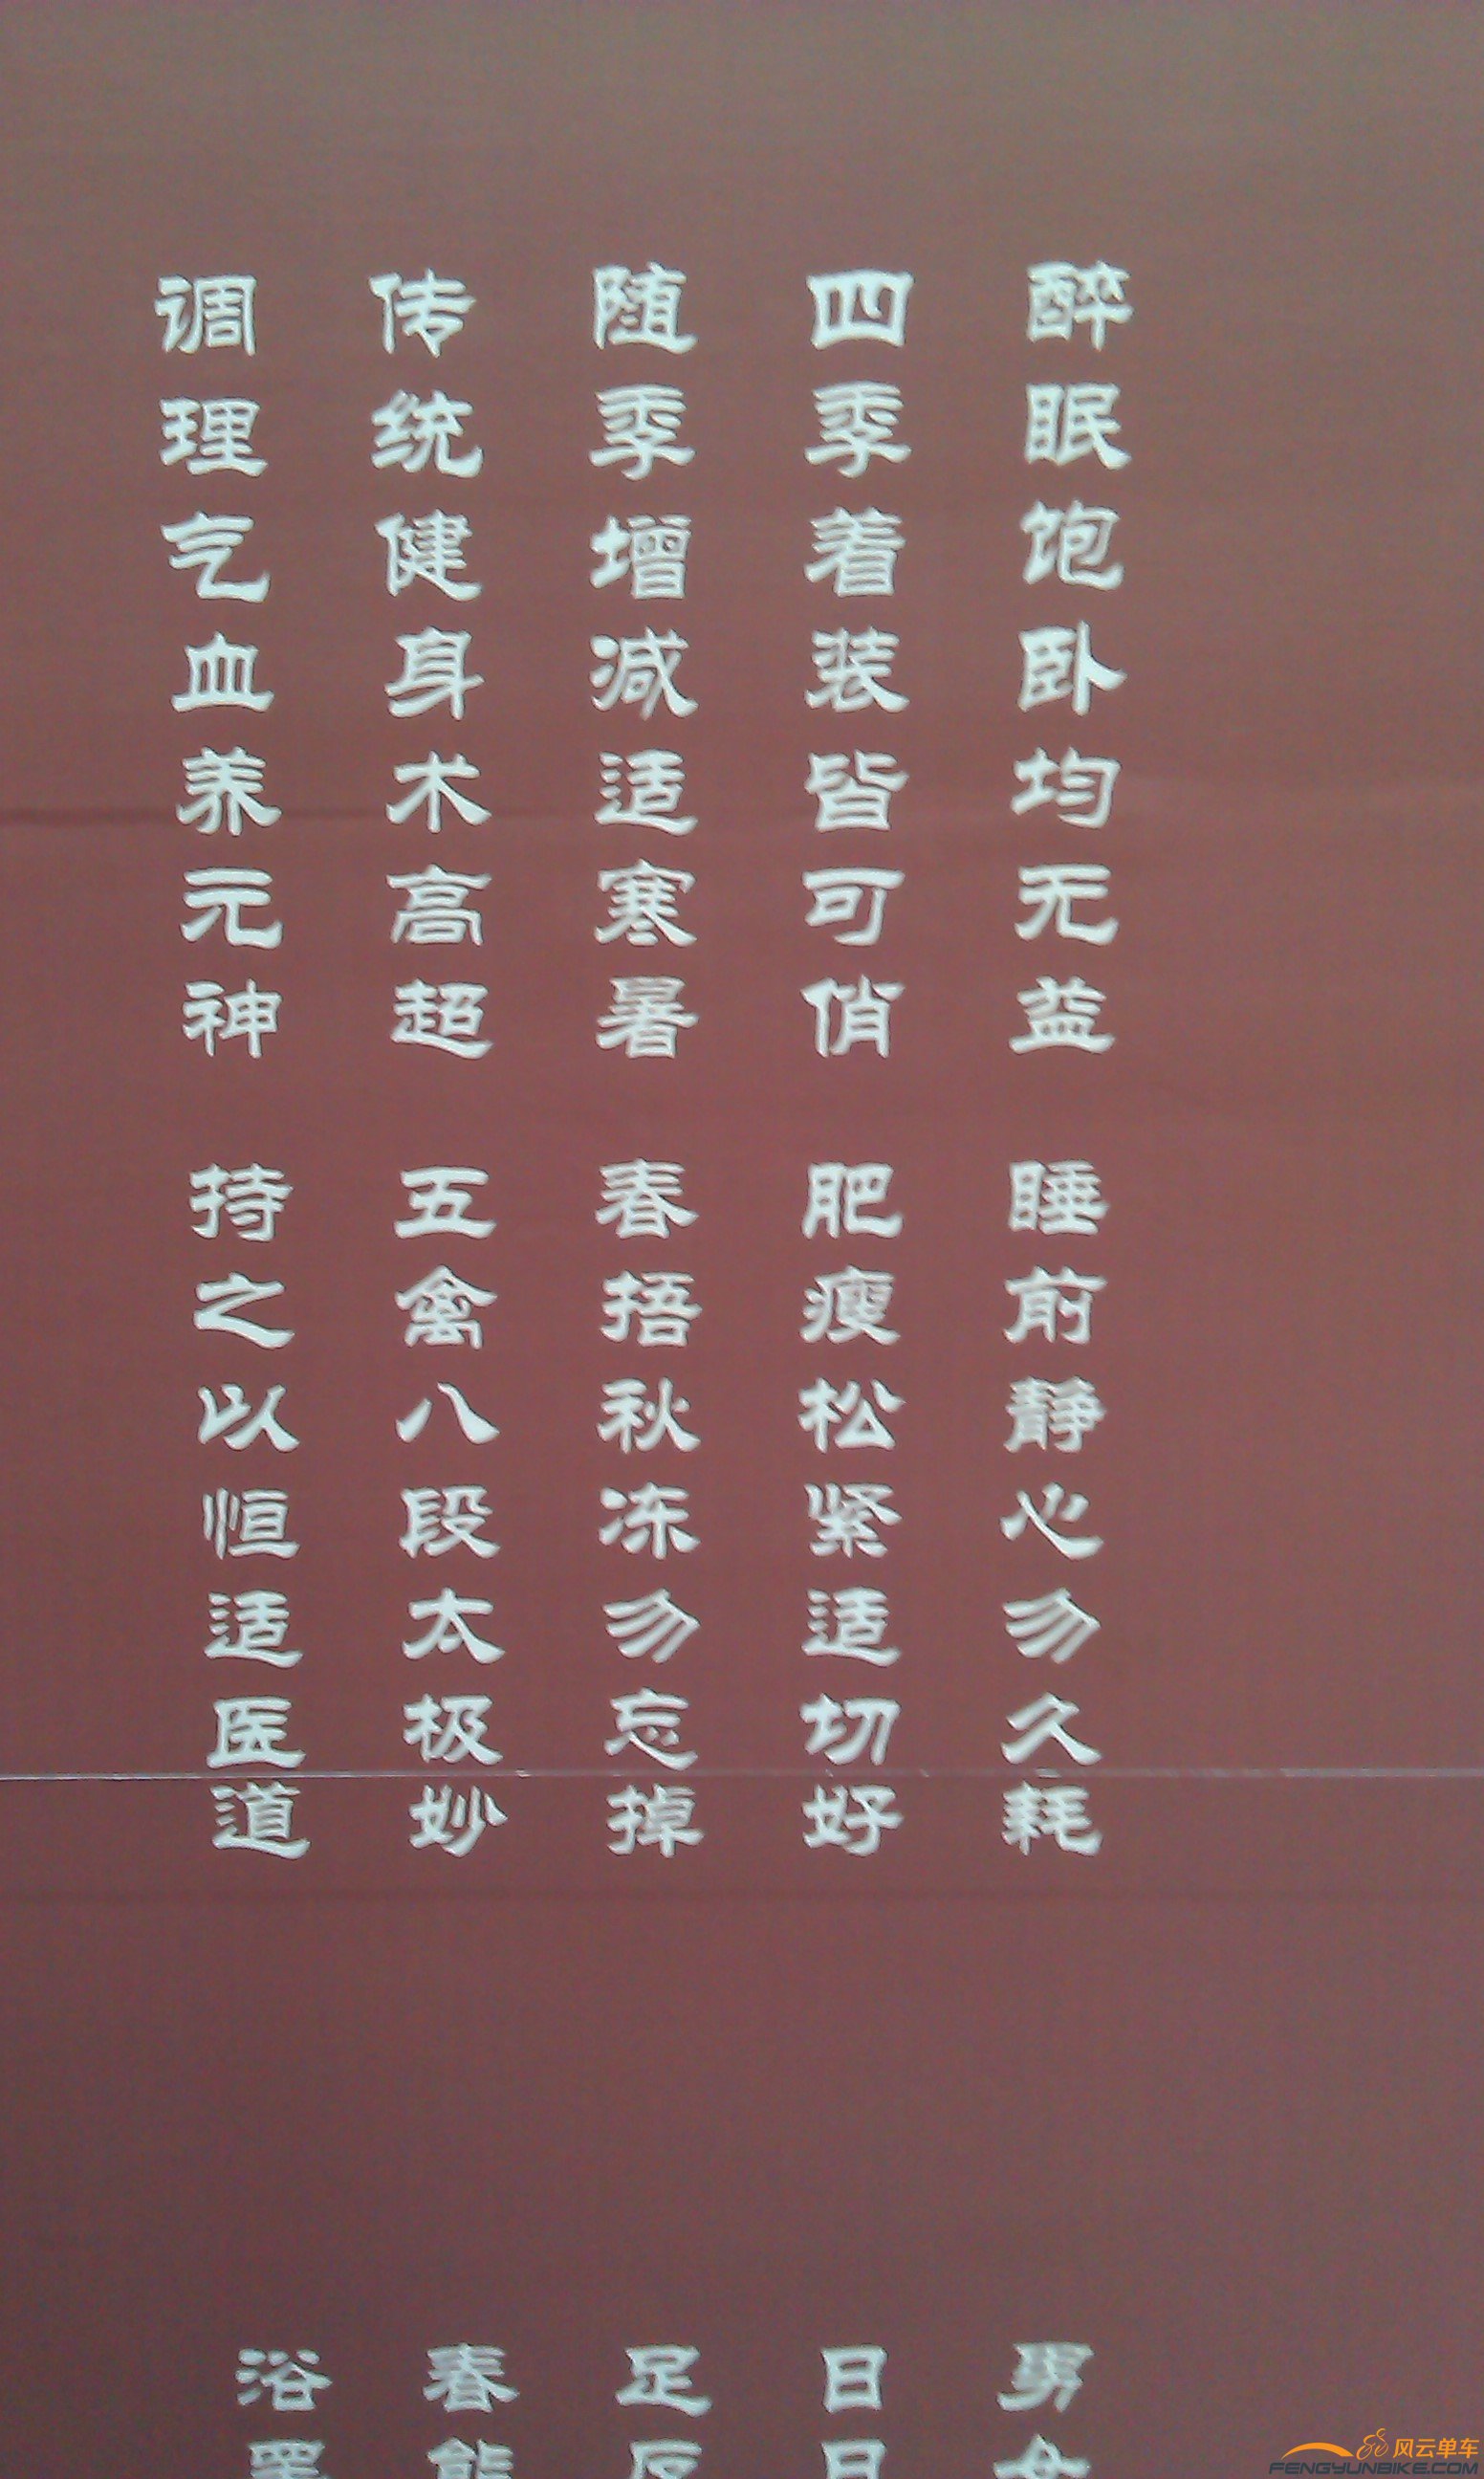 醉眠饱卧均无益 睡前静心勿久耗
四季着装皆可俏 肥瘦松紧适切好
随季增减适寒暑 春捂秋冻勿忘掉
传统健身术高超 五禽八段太极妙
调理气血养元神 持之以恒适医道
男女
日日
足
春
浴
风云单车
FENGYUNBIKE.COM